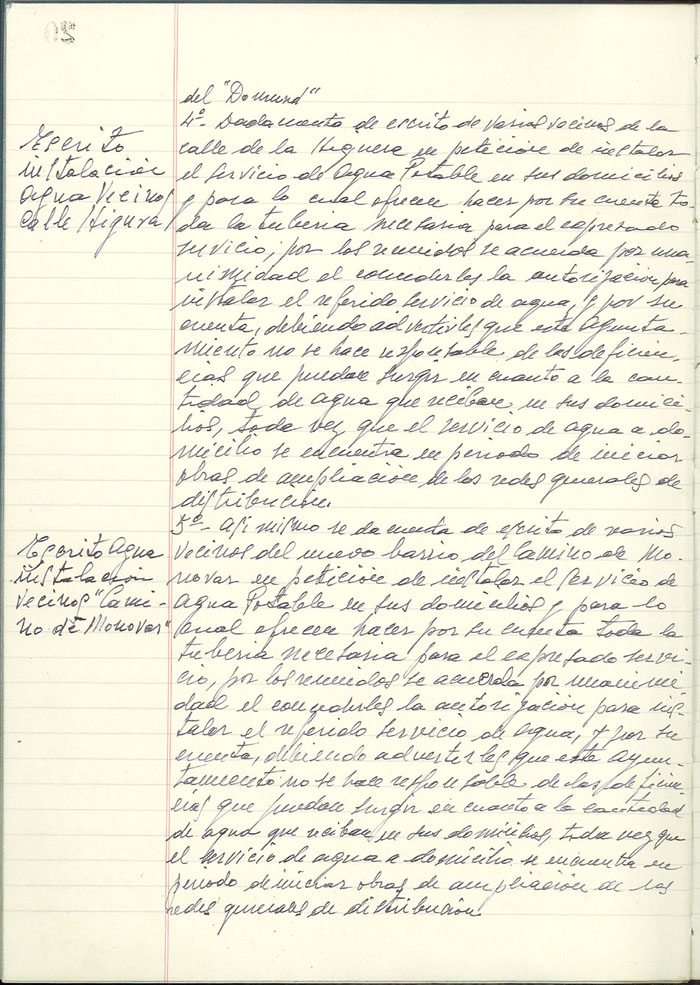 del "Domund"
4º- Dada cuenta de escrito de varios vecinos de la
calle de la Higuera en petición de instalar
el servicio de Agua Potable en sus domicilios
y para lo cual ofrecen hacer por su cuenta to-
da la tuberia necesaria para el expresado
servicio, por los reunidos se acuerda por una-
nimidad el concederles la autorización para
instalar el referido servicio de agua, y por su
cuenta, debiendo advertirles que este Ayunta-
miento no se hace responsable de las deficien-
cias que puedan surgir en cuanto a la can-
tidad de agua que reciban en sus domici-
lios, toda vez que el servicio de agua a do-
micilio se encuentra en periodo de iniciar
obras de ampliación de las redes generales de
distribución.
5º- Asimismo se da cuenta de escrito de varios
vecinos del nuevo barrio del Camino de Mo-
novar en petición de instalar el servicio de
agua Potable en sus domicilios y para lo
cual ofrecen hacer por su cuenta toda la
tuberia necesaria para el expresado servi-
cio, por los reunidos se acuerda por unanimi
dad el concederles la autorización para ins-
talar el referido servicio de agua, y por su
cuenta, debiendo advertirles que este Ayun-
tamiento no se hace responsable de las deficien-
cias que puedan surgir en cuanto a la cantidad
de agua que reciban en sus domicilios, toda vez que
el servicio de agua a domicilio se encuentra en
periodo de iniciar obras de ampliación de las
redes generales de distribución
Escrito
instalación
agua Vecinos
Calle Higuera
Escrito Agua
instalación
vecinos "Cami-
no de Monovar"